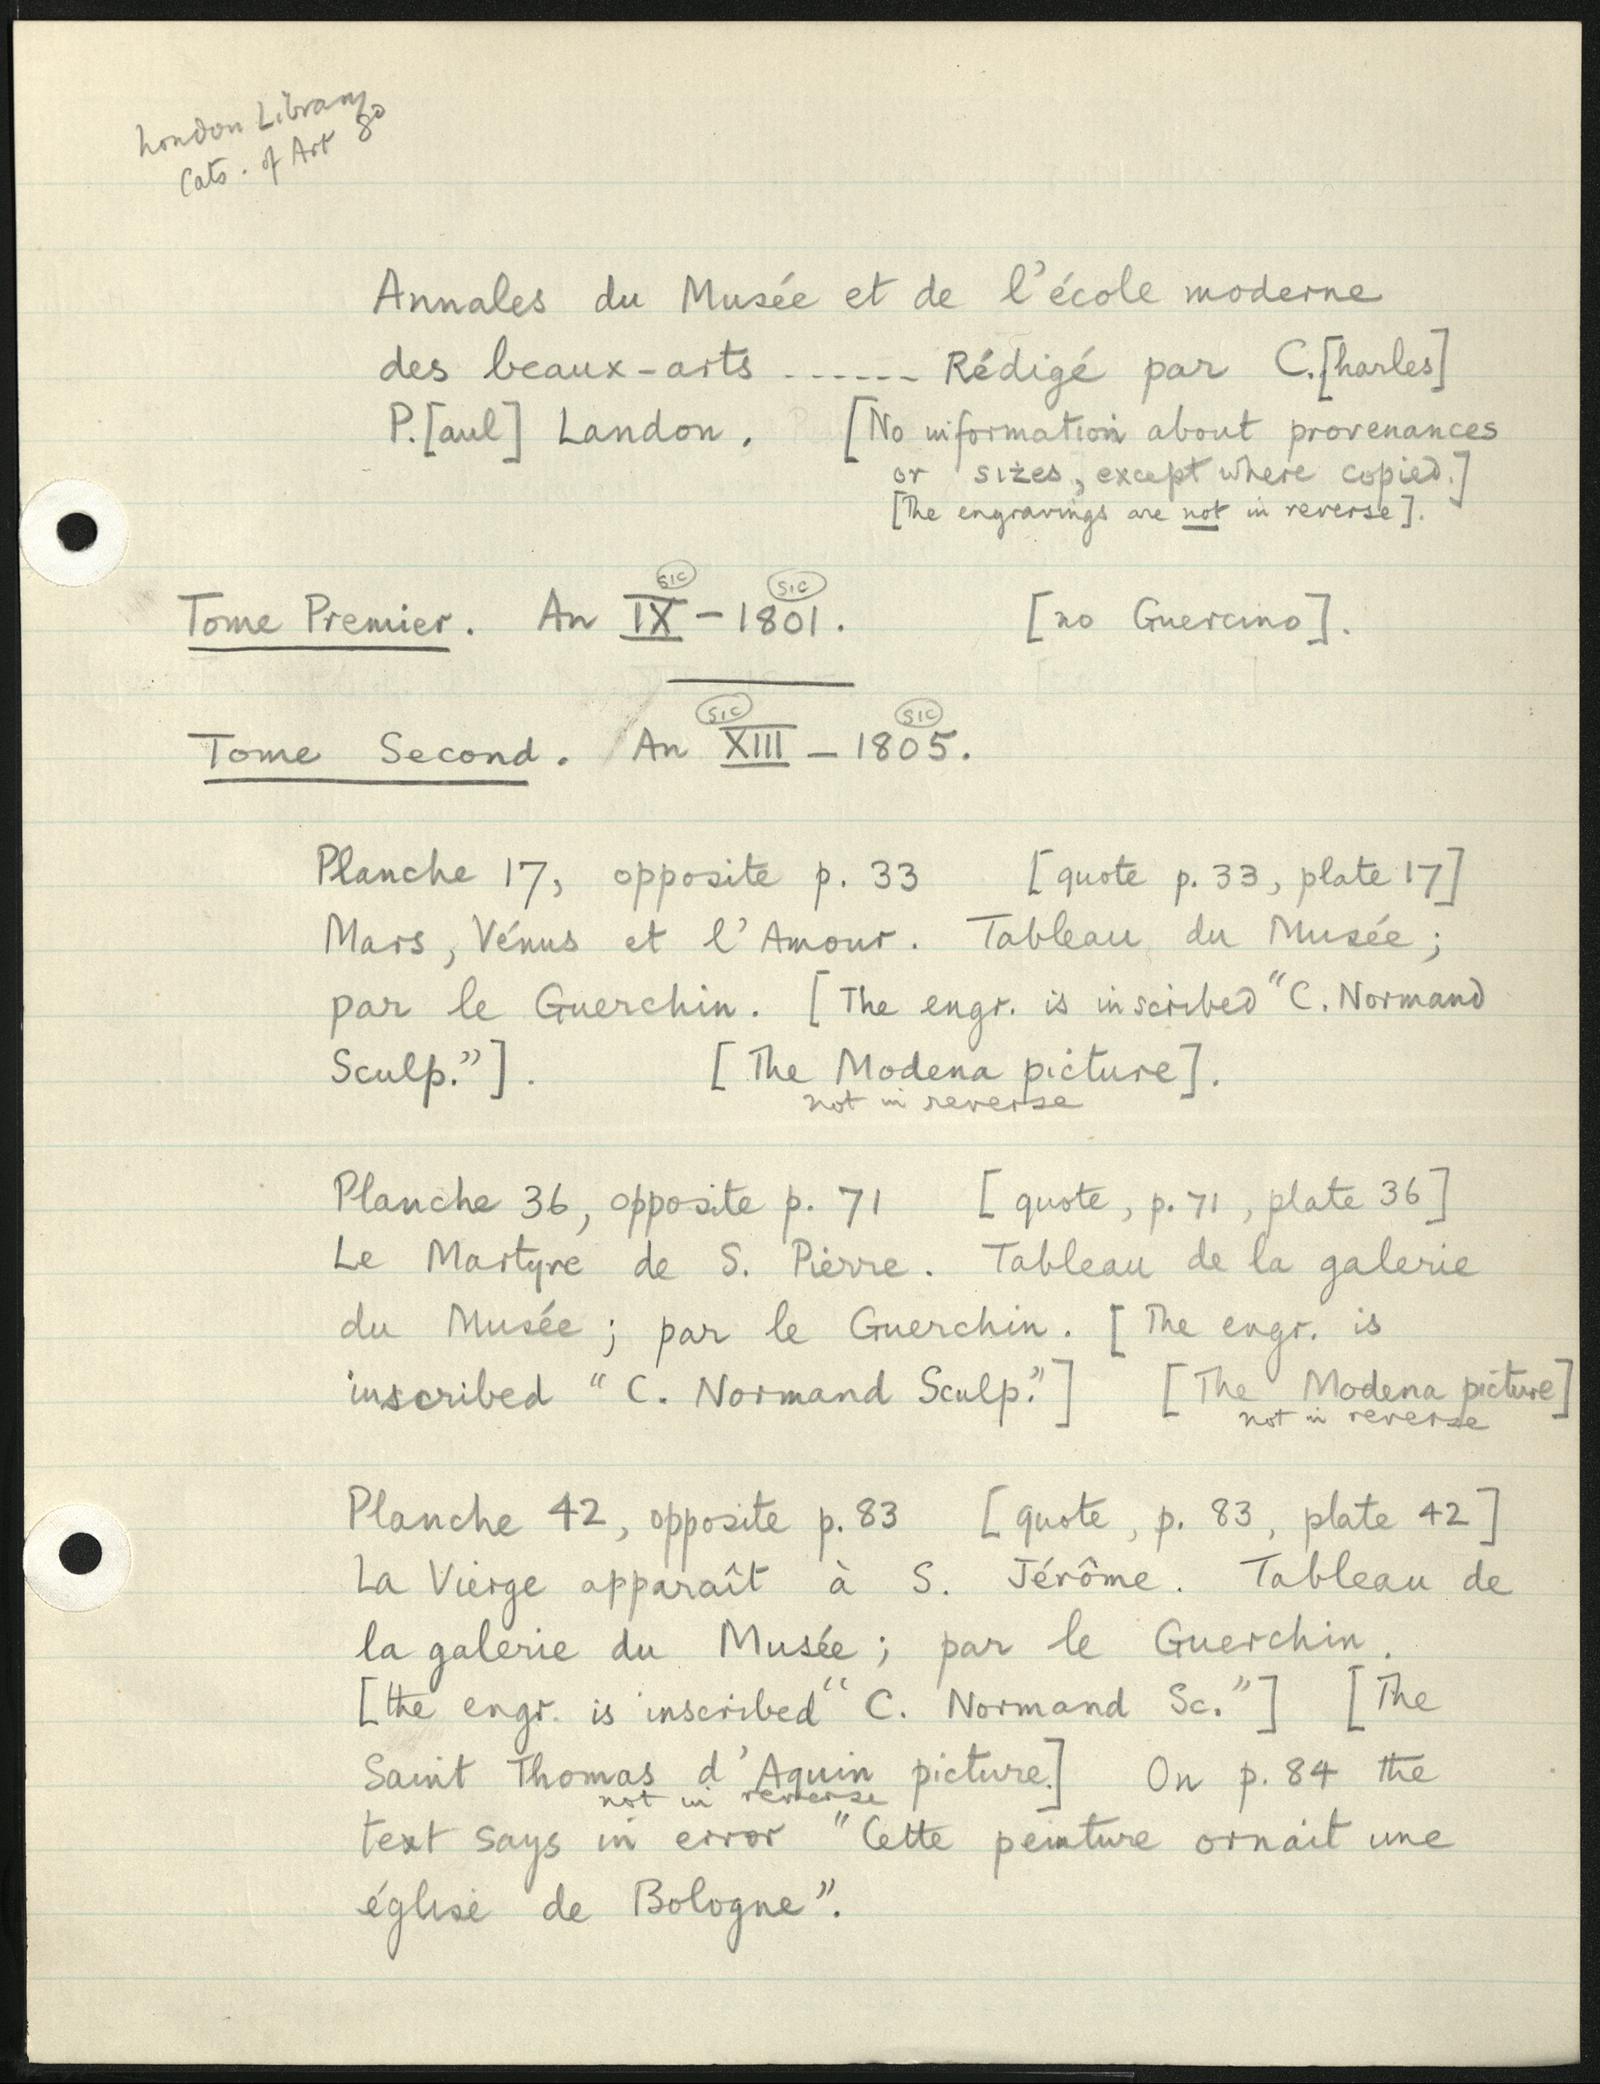 London Library
Cats. of Art 8o
Annales du Musée et de l'école moderne
des beaux-arts ...... Rédigé par C.[harles]
P.[aul] Landon. [No information about provenances
or sizes, except where copied.]
[The engravings are not in reverse].
sic sic
Tome Premier. An IX - 1801. [no Guercino].
sic sic
Tome Second. An XIII - 1805.
Planche 17, opposite p. 33 [quote p. 33, plate 17]
Mars, Vénus et l'Amour. Tableau du Musée;
par le Guerchin. [The engr. is inscribed "C. Normand
Sculp."]. [The Modena picture].
not in reverse
Planche 36, opposite p. 71 [quote, p. 71, plate 36]
Le Martyre de S. Pierre. Tableau de la galerie
du Musée; par le Guerchin. [The engr. is
inscribed "C. Normand Sculp."] [The Modena picture]
not in reverse
Planche 42, opposite p. 83 [quote, p. 83, plate 42]
La Vierge apparaît à S. Jérôme. Tableau de
la galerie du Musée; par le Guerchin.
[the engr. is inscribed "C. Normand Sc."] [The
Saint Thomas d'Aquin picture.] On p. 84 the
not in reverse
text says in error "Cette peinture ornait une
église de Bologne".